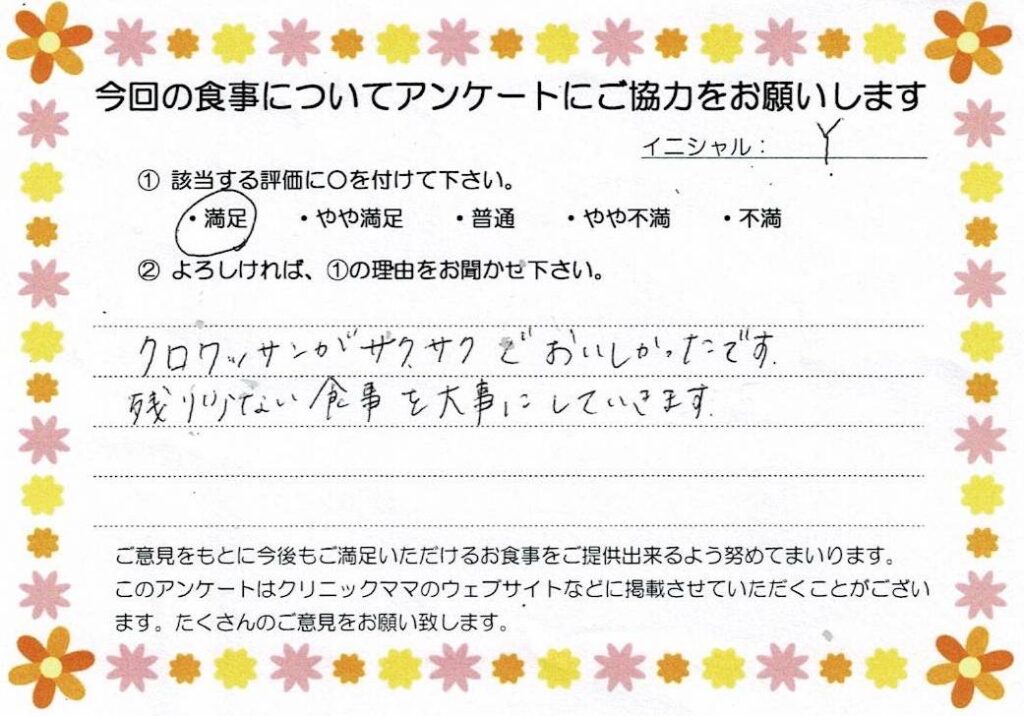 今回の食事についてアンケートにご協力をお願いします
イニシャル： Y
① 該当する評価に〇を付けて下さい。
・満足 ・やや満足 ・普通 ・やや不満 ・不満
② よろしければ、①の理由をお聞かせ下さい。
クロワッサンがザクザクでおいしかったです。
残り少ない食事を大事にしていきます。
ご意見をもとに今後もご満足いただけるお食事をご提供出来るよう努めてまいります。
このアンケートはクリニックママのウェブサイトなどに掲載させていただくことがござい
ます。たくさんのご意見をお願い致します。